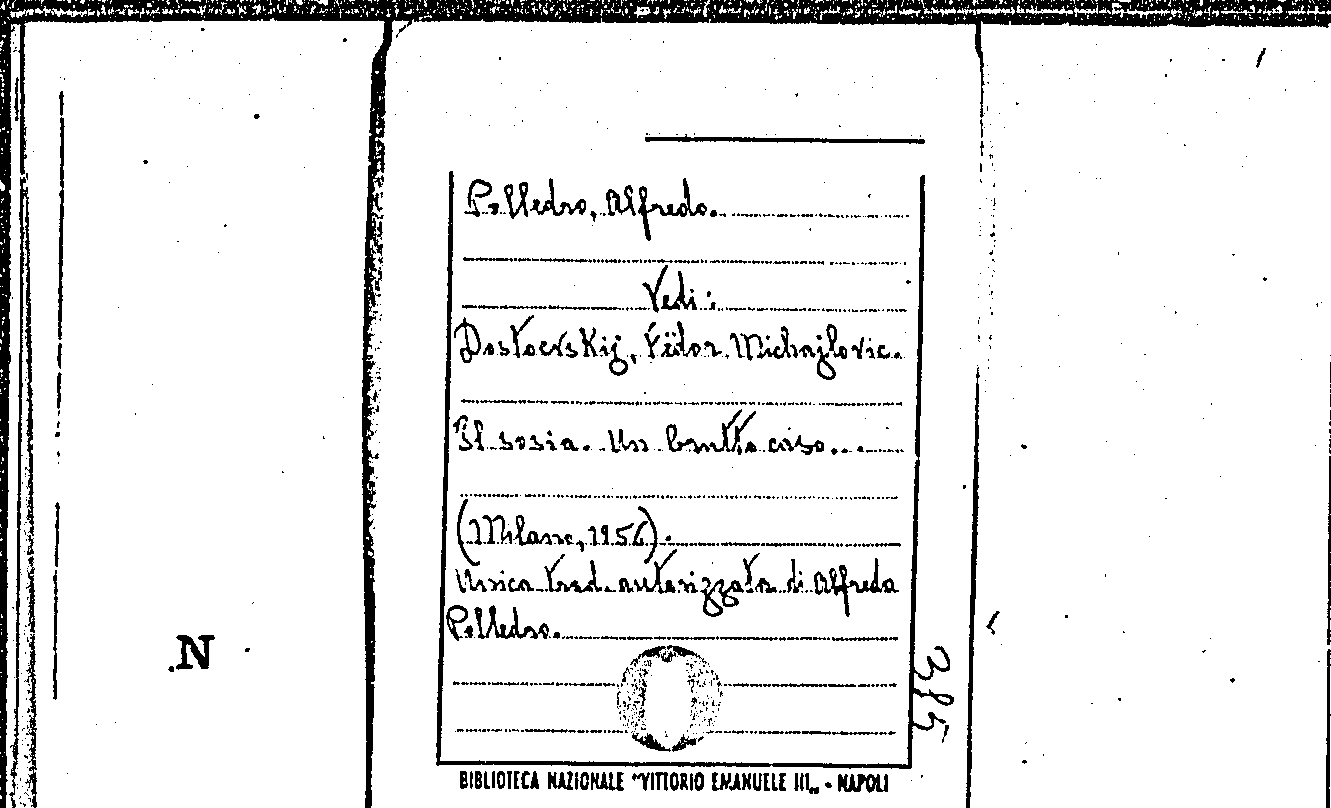 Polledro, Alfredo.
Vedi:
Dostoevskij, Fëdor Michajlovic.
Il sosia. Un brutto caso...
(Milano, 1956).
Unica trad. autorizzata di Alfredo
Polledro.
N
385
BIBLIOTECA NAZIONALE "VITTORIO EMANUELE III„ - NAPOLI